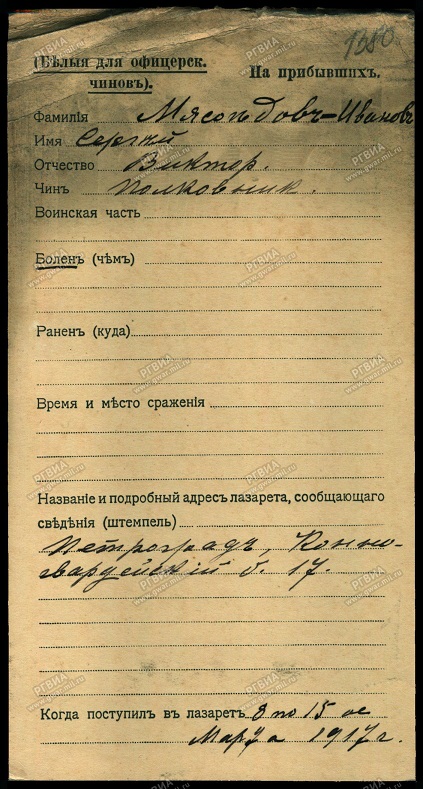 1380.
(Бѣлыя для офицерск. чиновъ).
На прибывшихъ.
Фамилія Мясоѣдовъ-Ивановъ
Имя Сергѣй
Отчество Виктор.
Чинъ Полковник.
Воинская часть
Боленъ (чѣмъ)
Раненъ (куда)
Время и мѣсто сраженія
Названіе и подробный адресъ лазарета, сообщающаго
свѣдѣнія (штемпель)
Петроградъ, Конно-
гвардейскій б. 17.
Когда поступилъ въ лазаретъ 8 по 15 ое
Марта 1917 г.
РГВИА
www.gwar.mil.ru